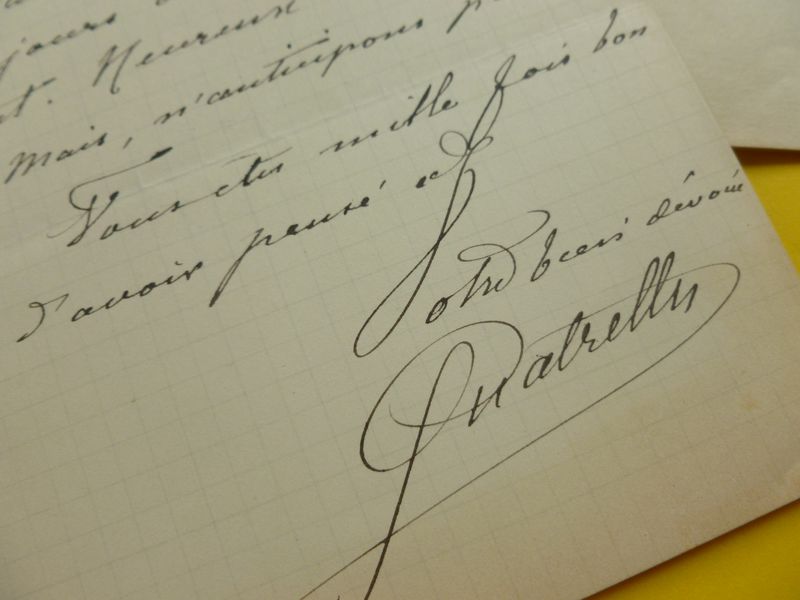 jours
t. Heureux
mais, n'anticipons p
Vous êtes mille fois bon
d'avoir pensé à
Votre bien dévoué
Quatrelles